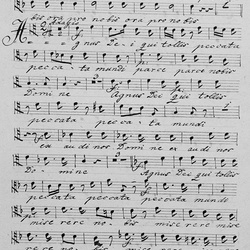 bis ora pro nobis ora pro nobis
Adagio
Agnus Dei qui tollis peccata
peccata mundi parce parce nobis
Domine Agnus Dei qui tollis
peccata peccata mundi
exaudi nos Domine exaudi nos
Domine Agnus Dei qui tollis
peccata peccata peccata mundi
miserere nobis miserere mise
rere nobis